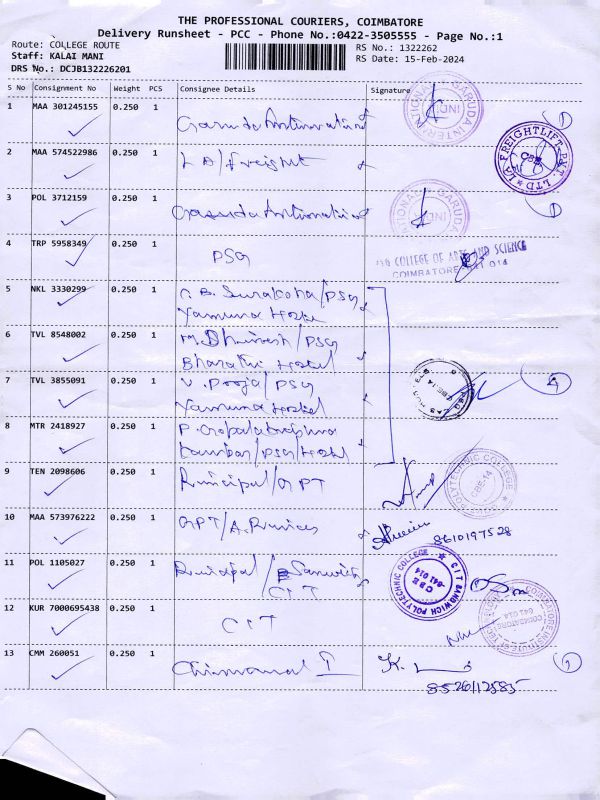 THE PROFESSIONAL COURIERS, COIMBATORE
Delivery Runsheet - PCC - Phone No.:0422-3505555 - Page No.:1
Route: COLLEGE ROUTE
RS No.: 1322262
Staff: KALAI MANI
RS Date: 15-Feb-2024
DRS No.: DCJB132226201
S No Consignment No Weight PCS Consignee Details Signature
1 MAA 301245155 0.250 1
GARUDA INTERNATIONAL
2 MAA 574522986 0.250 1 Freight
FREIGHTLIFT PVT. LTD
CBE
3 POL 3712159 0.250 1
GARUDA
4 TRP 5958349 0.250 1 PSG
PSG COLLEGE OF ARTS AND SCIENCE
COIMBATORE-641 014
5 NKL 3330299 0.250 1 /PSG
Yamuna Hostel
6 TVL 8548002 0.250 1 /PSG
Bharathi Hostel
7 TVL 3855091 0.250 1 V. Pooja/PSG
Yamuna Hostel
8 MTR 2418927 0.250 1 P. Gopalakrishna
/PSG/Hostel
9 TEN 2098606 0.250 1 Principal/GPT
POLYTECHNIC COLLEGE
CBE-14
10 MAA 573976222 0.250 1 GPT/A.
8610197528
11 POL 1105027 0.250 1 Principal/Sanwich
CIT
CIT SANDWICH POLYTECHNIC COLLEGE
CBE
641 014
12 KUR 7000695438 0.250 1 CIT
COIMBATORE
641 014
13 CMM 260051 0.250 1
K.
8526112585